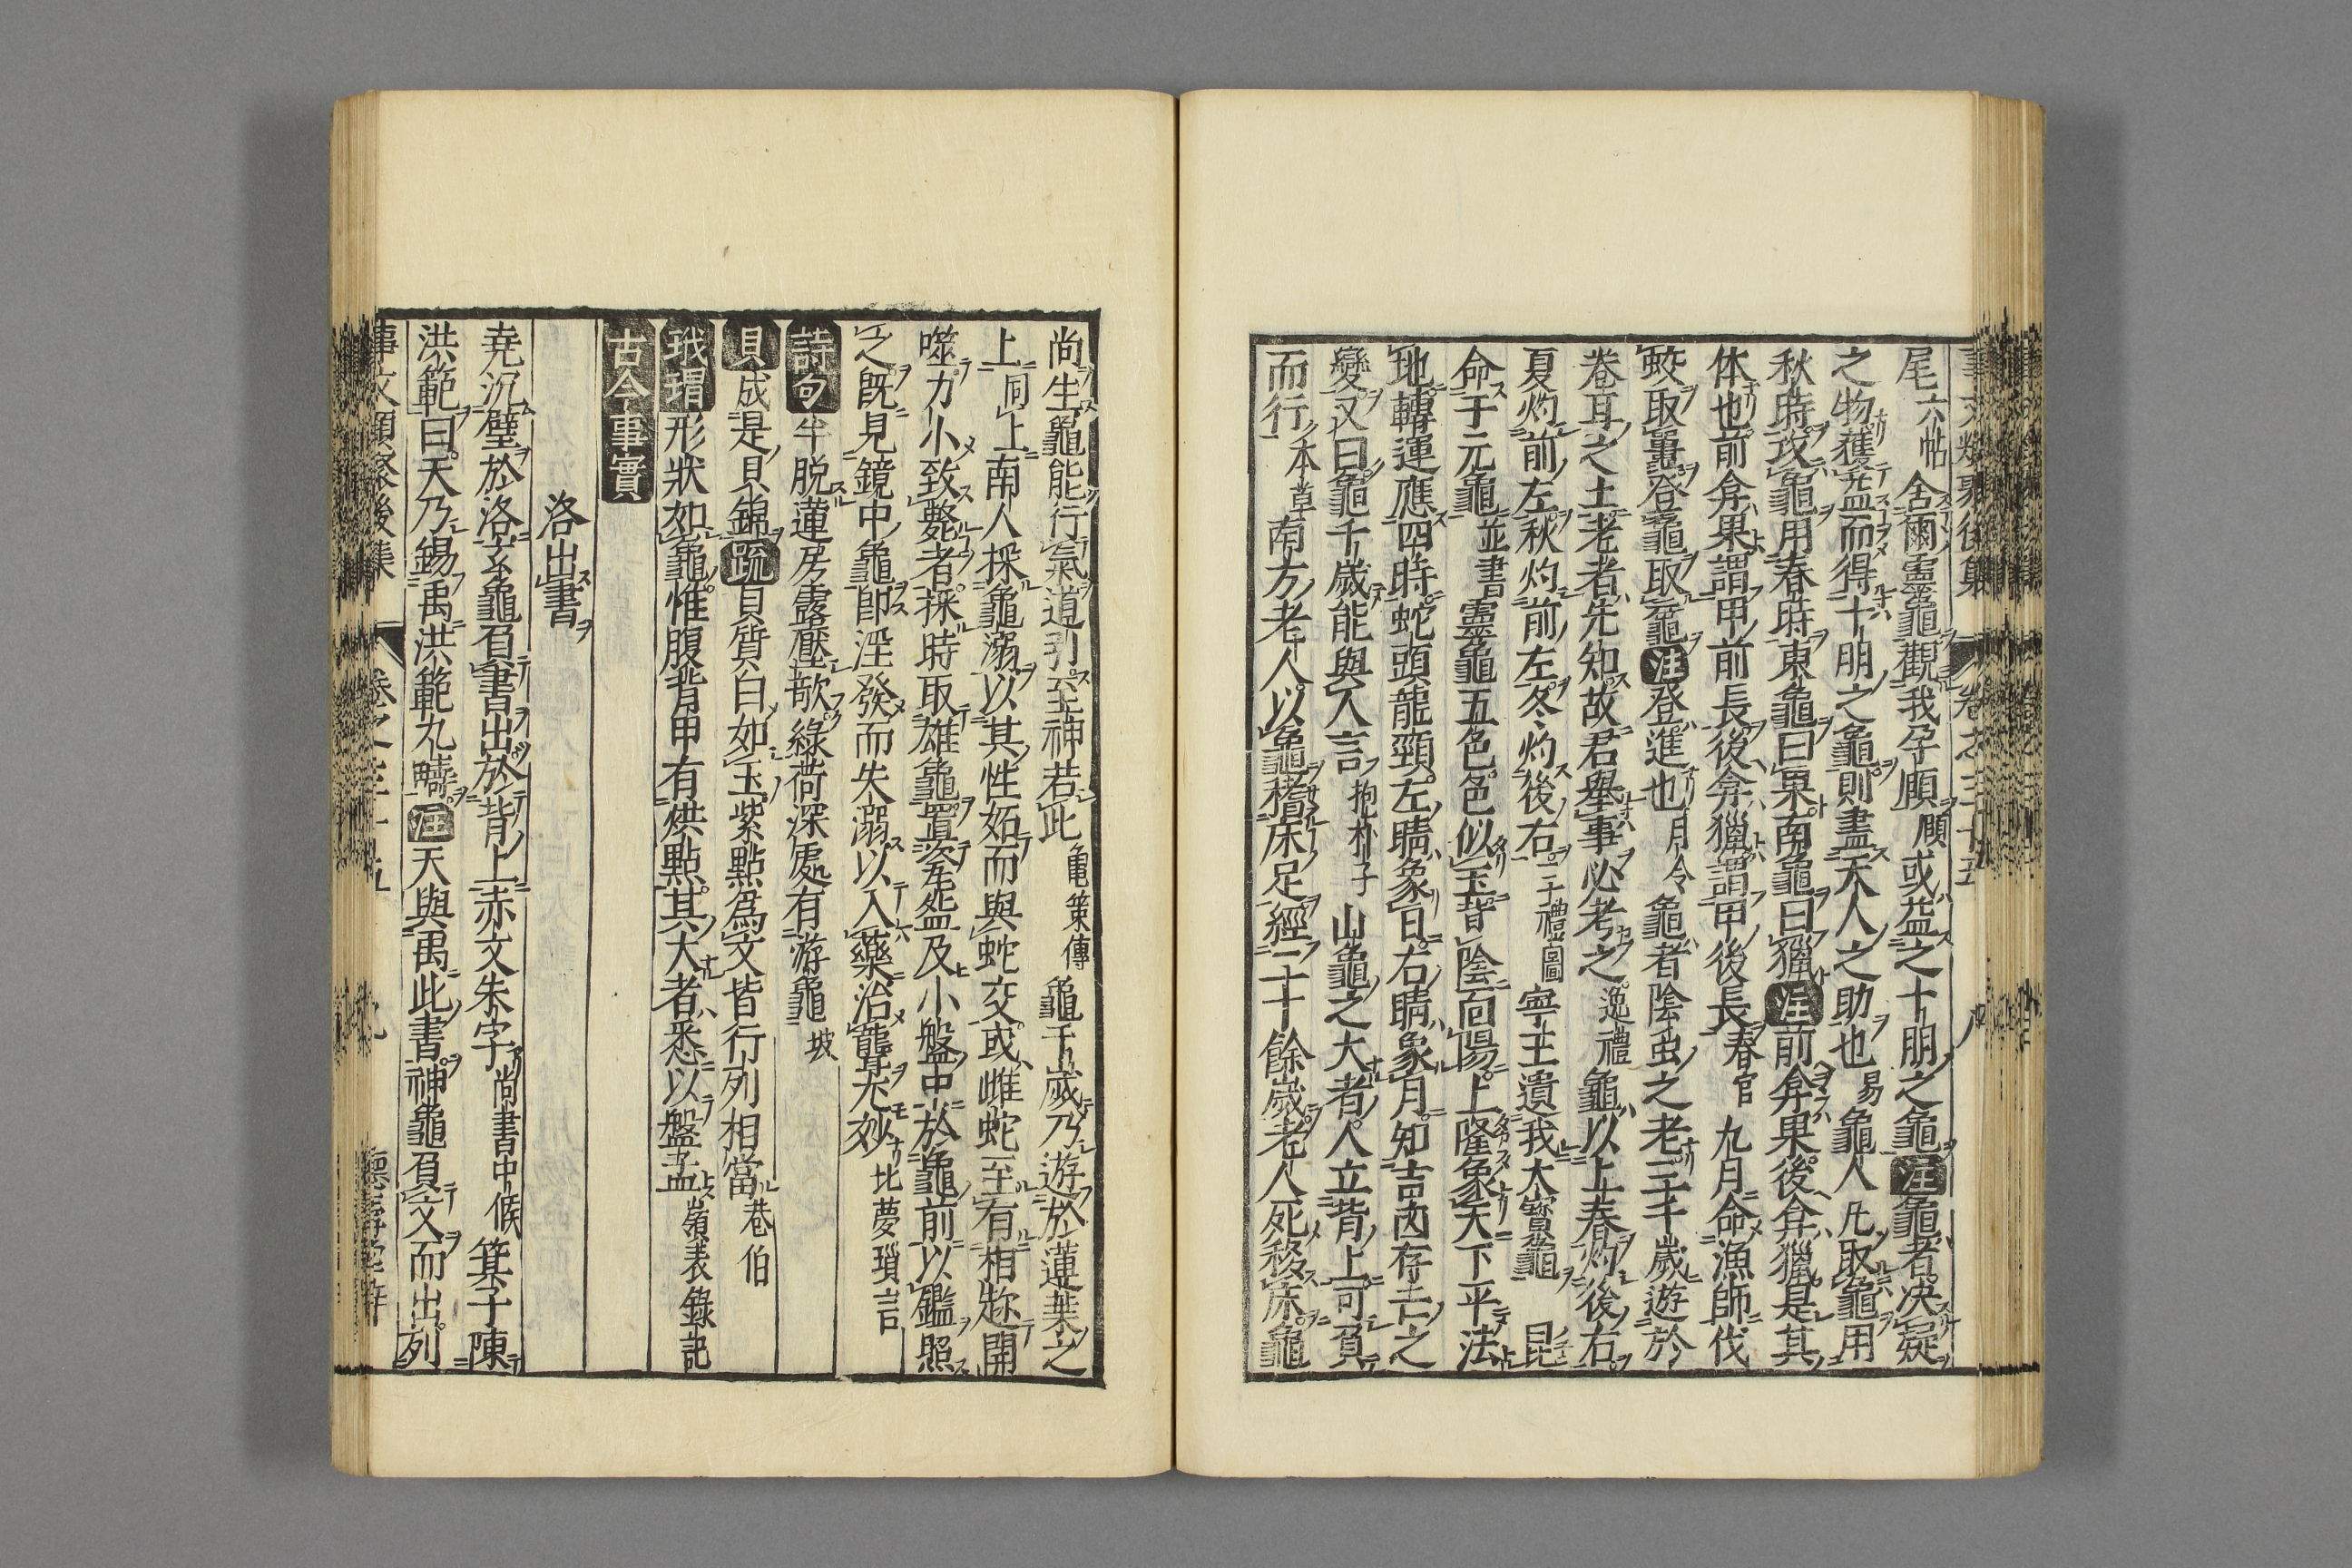 尾六帖舍爾靈龜觀我朶頤頤或益之十朋之龜注龜者決疑
之物獲益而得十朋之龜則盡天人之助也易龜人凡取龜用
秋時攻龜用春時東龜曰果南龜曰獵注前弇果後弇獵是其
体也前弇果謂甲前長後弇獵謂甲後長春官九月命漁師伐
蛟取鼉登龜取黿注登進也月令龜者陰虫之老三千歲遊於
卷耳之上老者先知故君舉事必考之逸禮龜以上春灼後右
夏灼前左秋灼前左冬灼後右三禮圖寧王遺我大寶龜昆
命于元龜並書靈龜五色色似玉背陰向陽上隆象天下平法
地轉運應四時蛇頭龍頸左睛象日右睛象月知吉凶存亡之
變又曰龜千歲能與人言抱朴子山龜之大者人立背上可負
而行本草南方老人以龜搘床足經二十餘歲老人死移床龜
尚生龜能行氣道引至神若此龜策傳龜千歲乃遊於蓮葉之
上同上南人採龜溺以其性妬而與蛇交或雌蛇至有相趂鬪
噬力小致斃者採時取雄龜置瓷盌及小盤中於龜前以鑑照
之既見鏡中龜即淫發而失溺以入藥治聾尤妙北夢瑣言
詩句半脱蓮房露壓欹綠荷深處有游龜坡
貝成是貝錦疏貝質白如玉紫點為文皆行列相當巷伯
玳瑁形狀如龜惟腹背甲有烘點其大者悉以盤盂嶺表錄記
古今事實
洛出書
堯沉璧於洛玄龜負書出於背上赤文朱字尚書中候箕子陳
洪範曰天乃錫禹洪範九疇注天與禹此書神龜負文而出列
事文類聚後集 卷之三十五 九 德壽堂梓